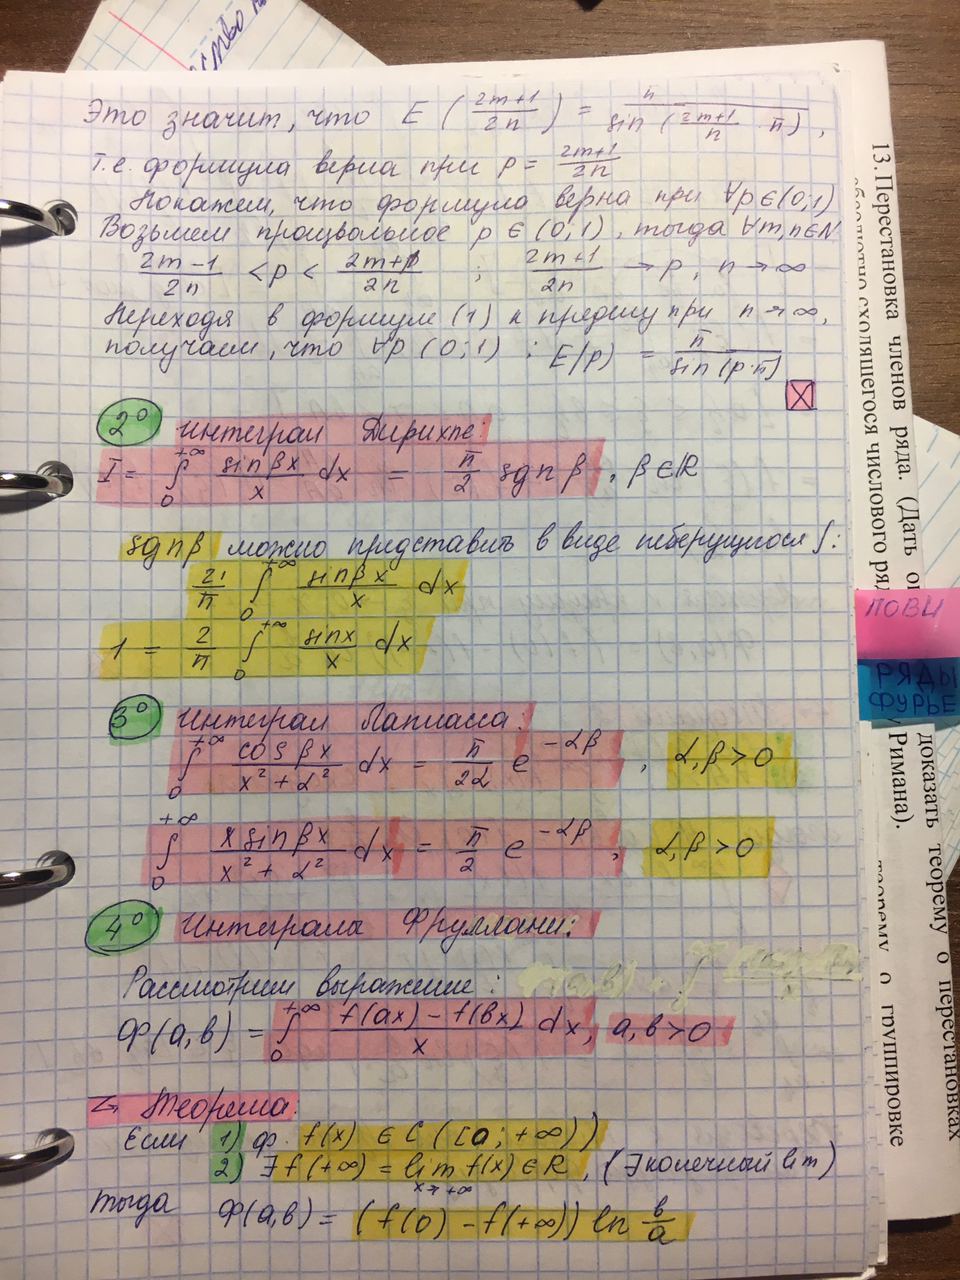 ство
Это значит, что E ( (2m+1)/(2n) ) = π / sin ( (2m+1)/n · π ),
т.е. формула верна при p = (2m+1)/(2n)
Покажем, что формула верна при ∀p∈(0;1)
Возьмем произвольное p ∈ (0;1), тогда ∀m,n∈N
(2m-1)/(2n) < p < (2m+1)/(2n) ; (2m+1)/(2n) → p, n → ∞
Переходя в формуле (1) к пределу при n→∞,
получаем, что ∀p (0;1) : E(p) = π / sin(p·π)
2° Интеграл Дирихле:
I = ∫₀^{+∞} (sin βx)/x dx = π/2 sgn β, β∈R
sgn β можно представить в виде неберущегося ∫:
2/π ∫₀^{+∞} (sin βx)/x dx
1 = 2/π ∫₀^{+∞} (sin x)/x dx
3° Интеграл Лапласса:
∫₀^{+∞} (cos βx)/(x² + α²) dx = π/(2α) e^{-αβ}, α,β>0
∫₀^{+∞} (x sin βx)/(x² + α²) dx = π/2 e^{-αβ}, α,β>0
4° Интегралы Фруллани:
Рассмотрим выражение:
Ф(a,b) = ∫₀^{+∞} (f(ax) - f(bx))/x dx, a,b>0
↳ Теорема:
Если 1) ф. f(x) ∈ C ([0;+∞))
2) ∃ f(+∞) = lim_{x→+∞} f(x) ∈ R, (∃ конечный lim)
тогда Ф(a,b) = (f(0) - f(+∞)) ln b/a
13. Перестановка членов ряда. (Дать
сходящегося числового
доказать теорему о перестановках
Римана).
теорему о группировке
ПОВИ
РЯДЫ
ФУРЬЕ